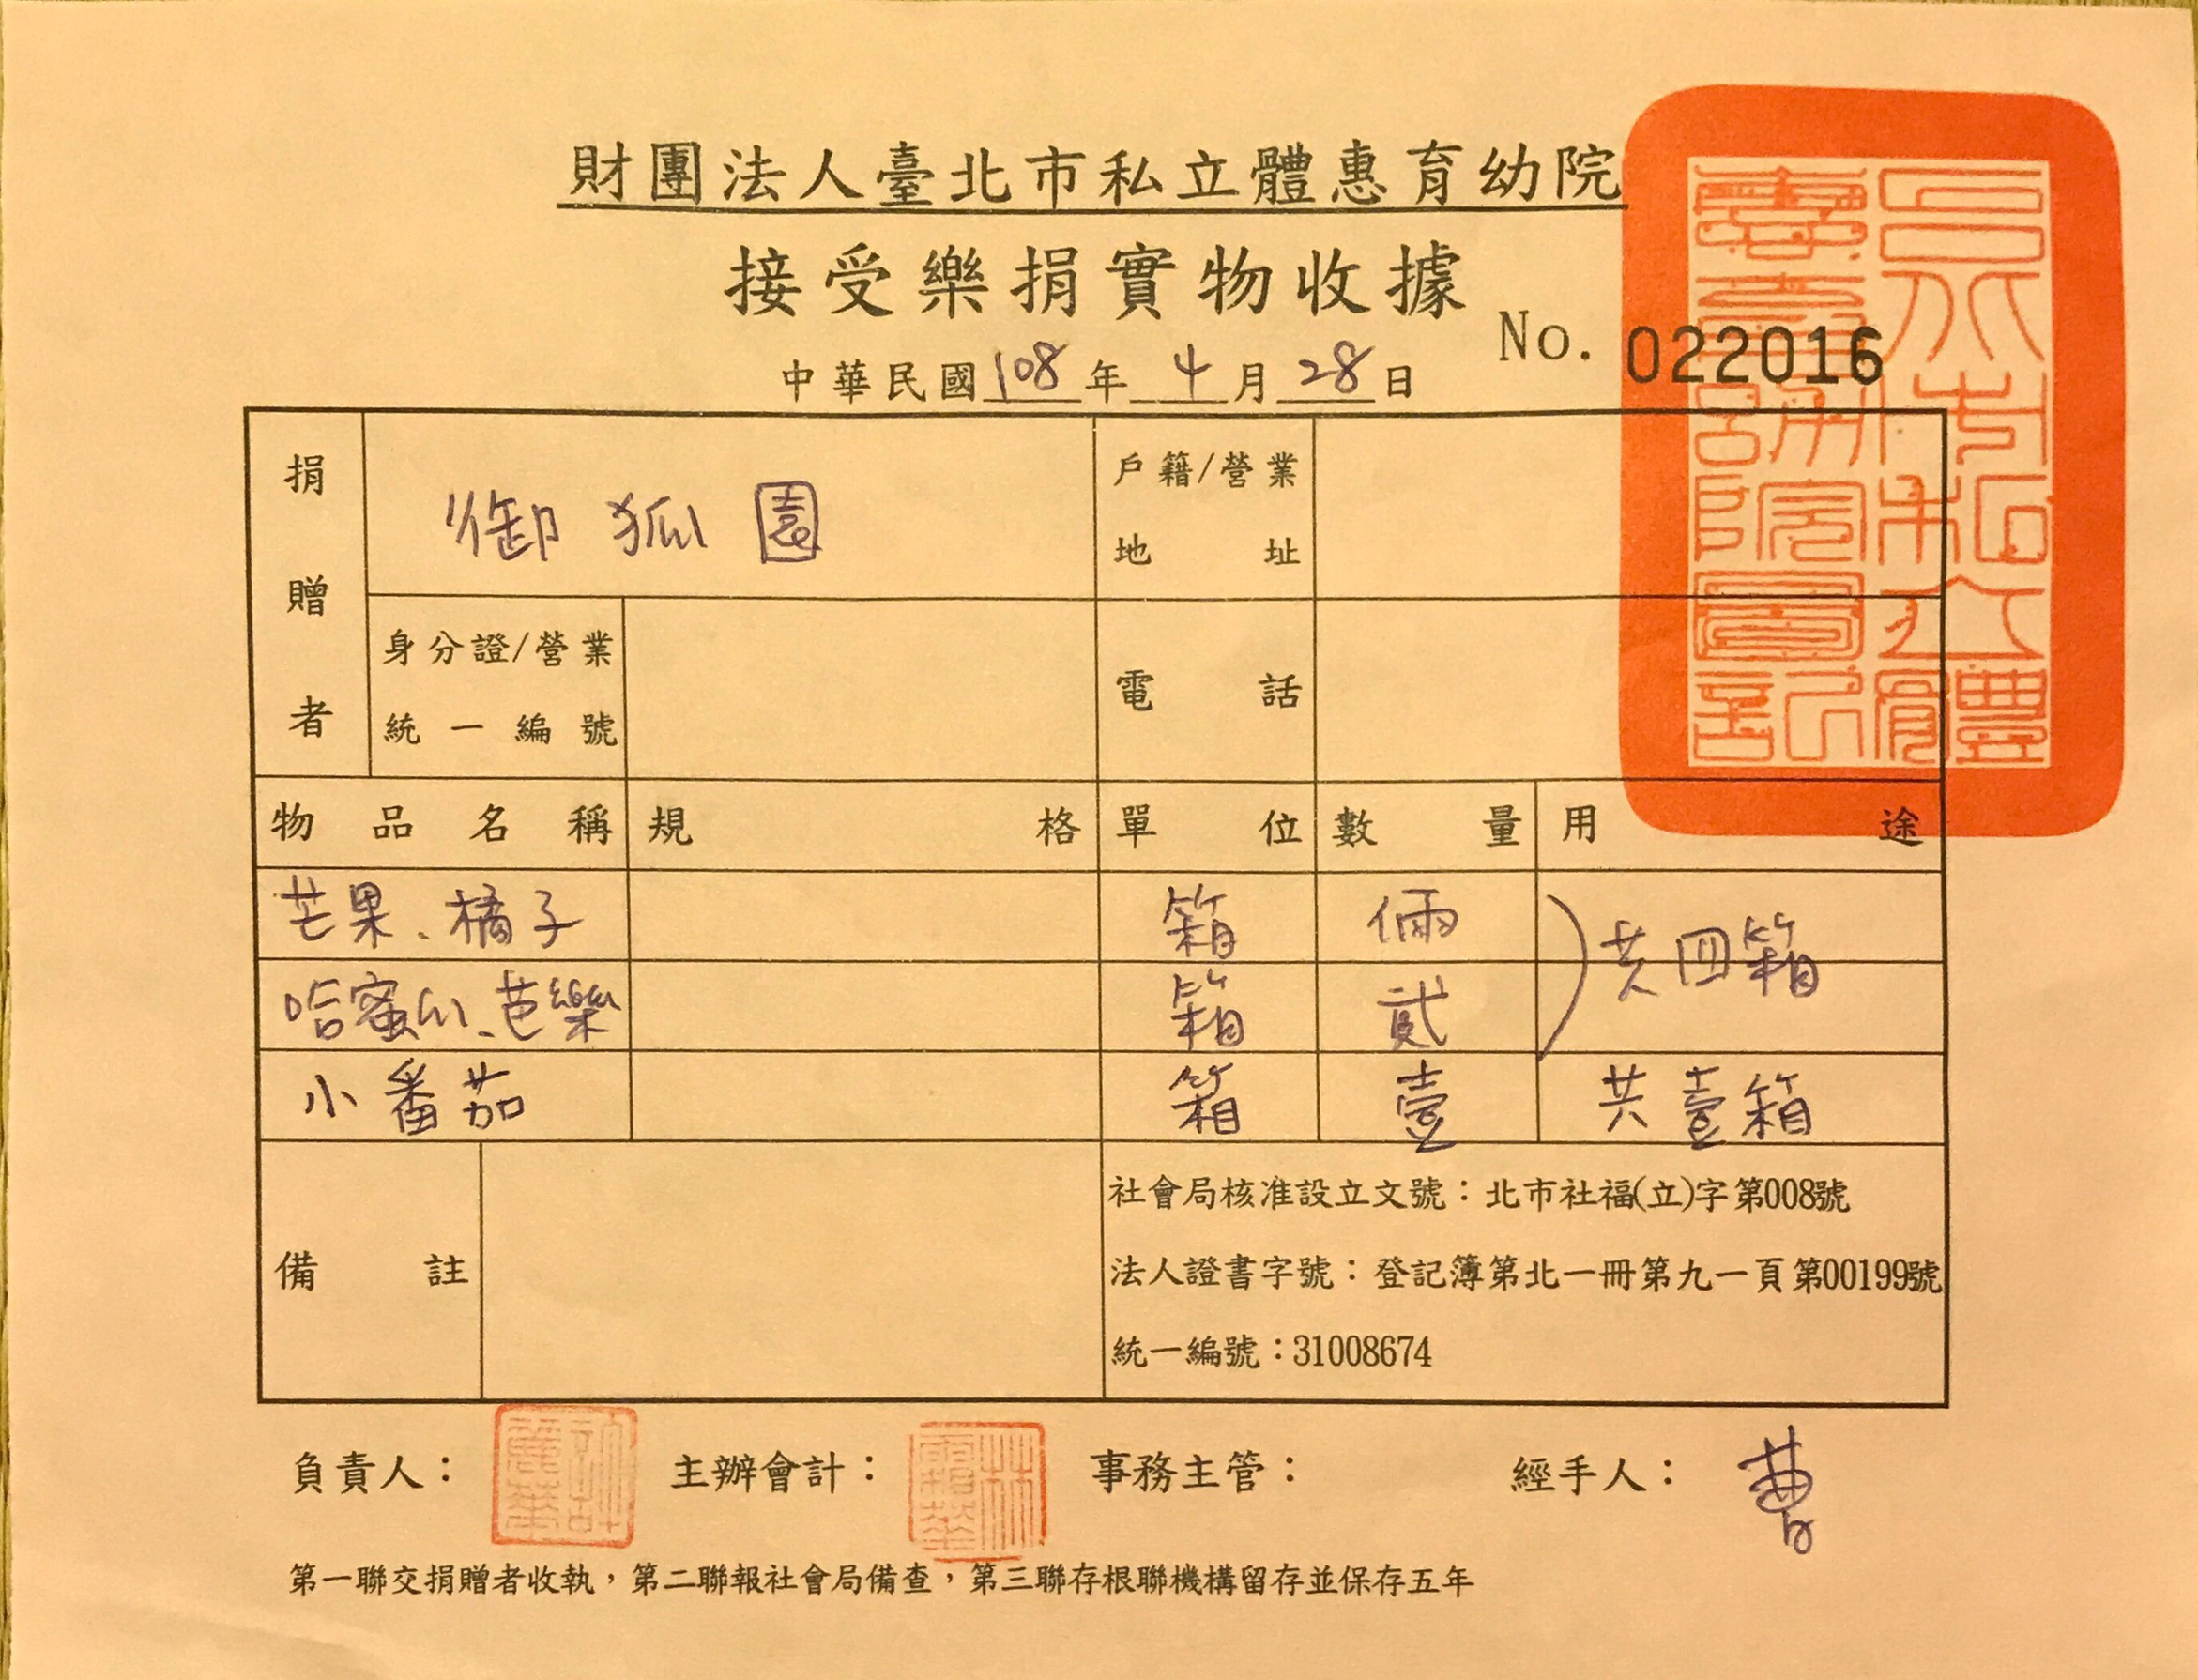 財團法人臺北市私立體惠育幼院
接受樂捐實物收據
No. 022016
中華民國108年4月28日
捐贈者 御狐園 戶籍/營業地址
身分證/營業統一編號 電話
物品名稱 規格 單位 數量 用途
芒果、橘子 箱 倆 共四箱
哈蜜瓜、芭樂 箱 貳
小番茄 箱 壹 共壹箱
備註
社會局核准設立文號：北市社福(立)字第008號
法人證書字號：登記簿第北一冊第九一頁第00199號
統一編號：31008674
負責人： 主辦會計： 事務主管： 經手人：曹
第一聯交捐贈者收執，第二聯報社會局備查，第三聯存根聯機構留存並保存五年